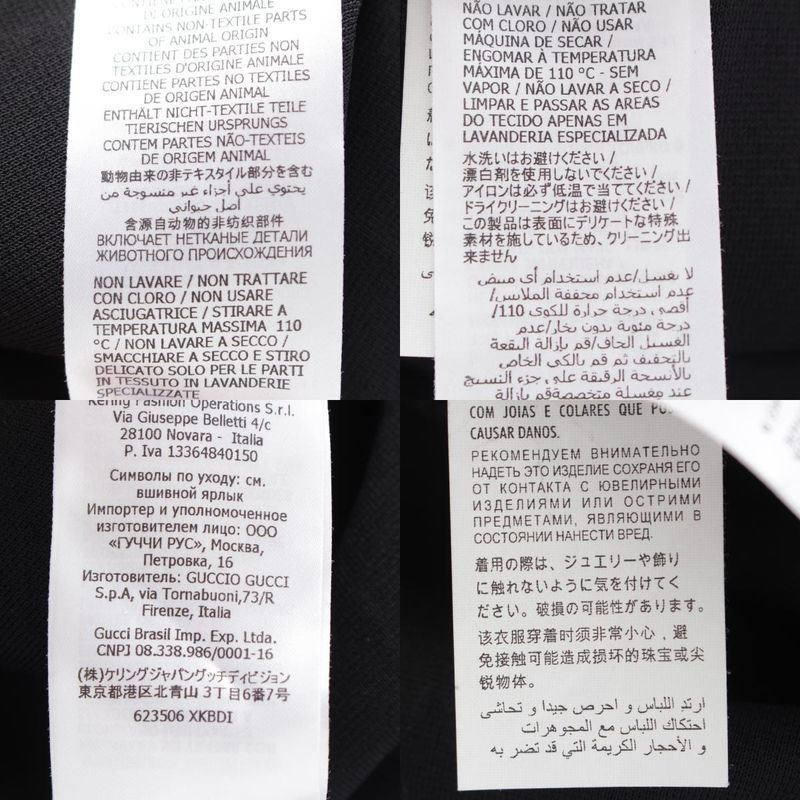 DI ORIGINE ANIMALE
CONTAINS NON-TEXTILE PARTS
OF ANIMAL ORIGIN
CONTIENT DES PARTIES NON
TEXTILES D'ORIGINE ANIMALE
CONTIENE PARTES NO TEXTILES
DE ORIGEN ANIMAL
ENTHÄLT NICHT-TEXTILE TEILE
TIERISCHEN URSPRUNGS
CONTEM PARTES NÃO-TEXTEIS
DE ORIGEM ANIMAL
動物由来の非テキスタイル部分を含む
يحتوي على أجزاء غير منسوجة من
أصل حيواني
含源自动物的非纺织部件
ВКЛЮЧАЕТ НЕТКАНЫЕ ДЕТАЛИ
ЖИВОТНОГО ПРОИСХОЖДЕНИЯ
NON LAVARE / NON TRATTARE
CON CLORO / NON USARE
ASCIUGATRICE / STIRARE A
TEMPERATURA MASSIMA 110
°C / NON LAVARE A SECCO /
SMACCHIARE A SECCO E STIRO
DELICATO SOLO PER LE PARTI
IN TESSUTO IN LAVANDERIE
SPECIALIZZATE
NÃO LAVAR / NÃO TRATAR
COM CLORO / NÃO USAR
MÁQUINA DE SECAR /
ENGOMAR À TEMPERATURA
MÁXIMA DE 110 °C - SEM
VAPOR / NÃO LAVAR A SECO /
LIMPAR E PASSAR AS AREAS
DO TECIDO APENAS EM
LAVANDERIA ESPECIALIZADA
水洗いはお避けください/
漂白剤を使用しないでください/
アイロンは必ず低温で当ててください/
ドライクリーニングはお避けください/
この製品は表面にデリケートな特殊
素材を施しているため、クリーニング出
来ません
لا يغسل/عدم استخدام أي مبيض
عدم استخدام مجففة الملابس/
أقصى درجة حرارة للكوي 110/
درجة مئوية بدون بخار/عدم
الغسيل الجاف/قم بإزالة البقعة
بالتجفيف ثم قم بالكي الخاص
بالأنسجة الرقيقة على جزء النسيج
عند مغسلة متخصصةقم بإزالة
Kering Fashion Operations S.r.l.
Via Giuseppe Belletti 4/c
28100 Novara - Italia
P. Iva 13364840150
Символы по уходу: см.
вшивной ярлык
Импортер и уполномоченное
изготовителем лицо: ООО
«ГУЧЧИ РУС», Москва,
Петровка, 16
Изготовитель: GUCCIO GUCCI
S.p.A, via Tornabuoni,73/R
Firenze, Italia
Gucci Brasil Imp. Exp. Ltda.
CNPJ 08.338.986/0001-16
(株)ケリングジャパングッチディビジョン
東京都港区北青山 3丁目6番7号
623506 XKBDI
COM JOIAS E COLARES QUE
CAUSAR DANOS.
РЕКОМЕНДУЕМ ВНИМАТЕЛЬНО
НАДЕТЬ ЭТО ИЗДЕЛИЕ СОХРАНЯ ЕГО
ОТ КОНТАКТА С ЮВЕЛИРНЫМИ
ИЗДЕЛИЯМИ ИЛИ ОСТРИМИ
ПРЕДМЕТАМИ, ЯВЛЯЮЩИМИ В
СОСТОЯНИИ НАНЕСТИ ВРЕД.
着用の際は、ジュエリーや飾り
に触れないように気を付けてく
ださい。破損の可能性があります。
该衣服穿着时须非常小心，避
免接触可能造成损坏的珠宝或尖
锐物体。
ارتد اللباس و احرص جيدا و تحاشى
احتكاك اللباس مع المجوهرات
و الأحجار الكريمة التي قد تضر به